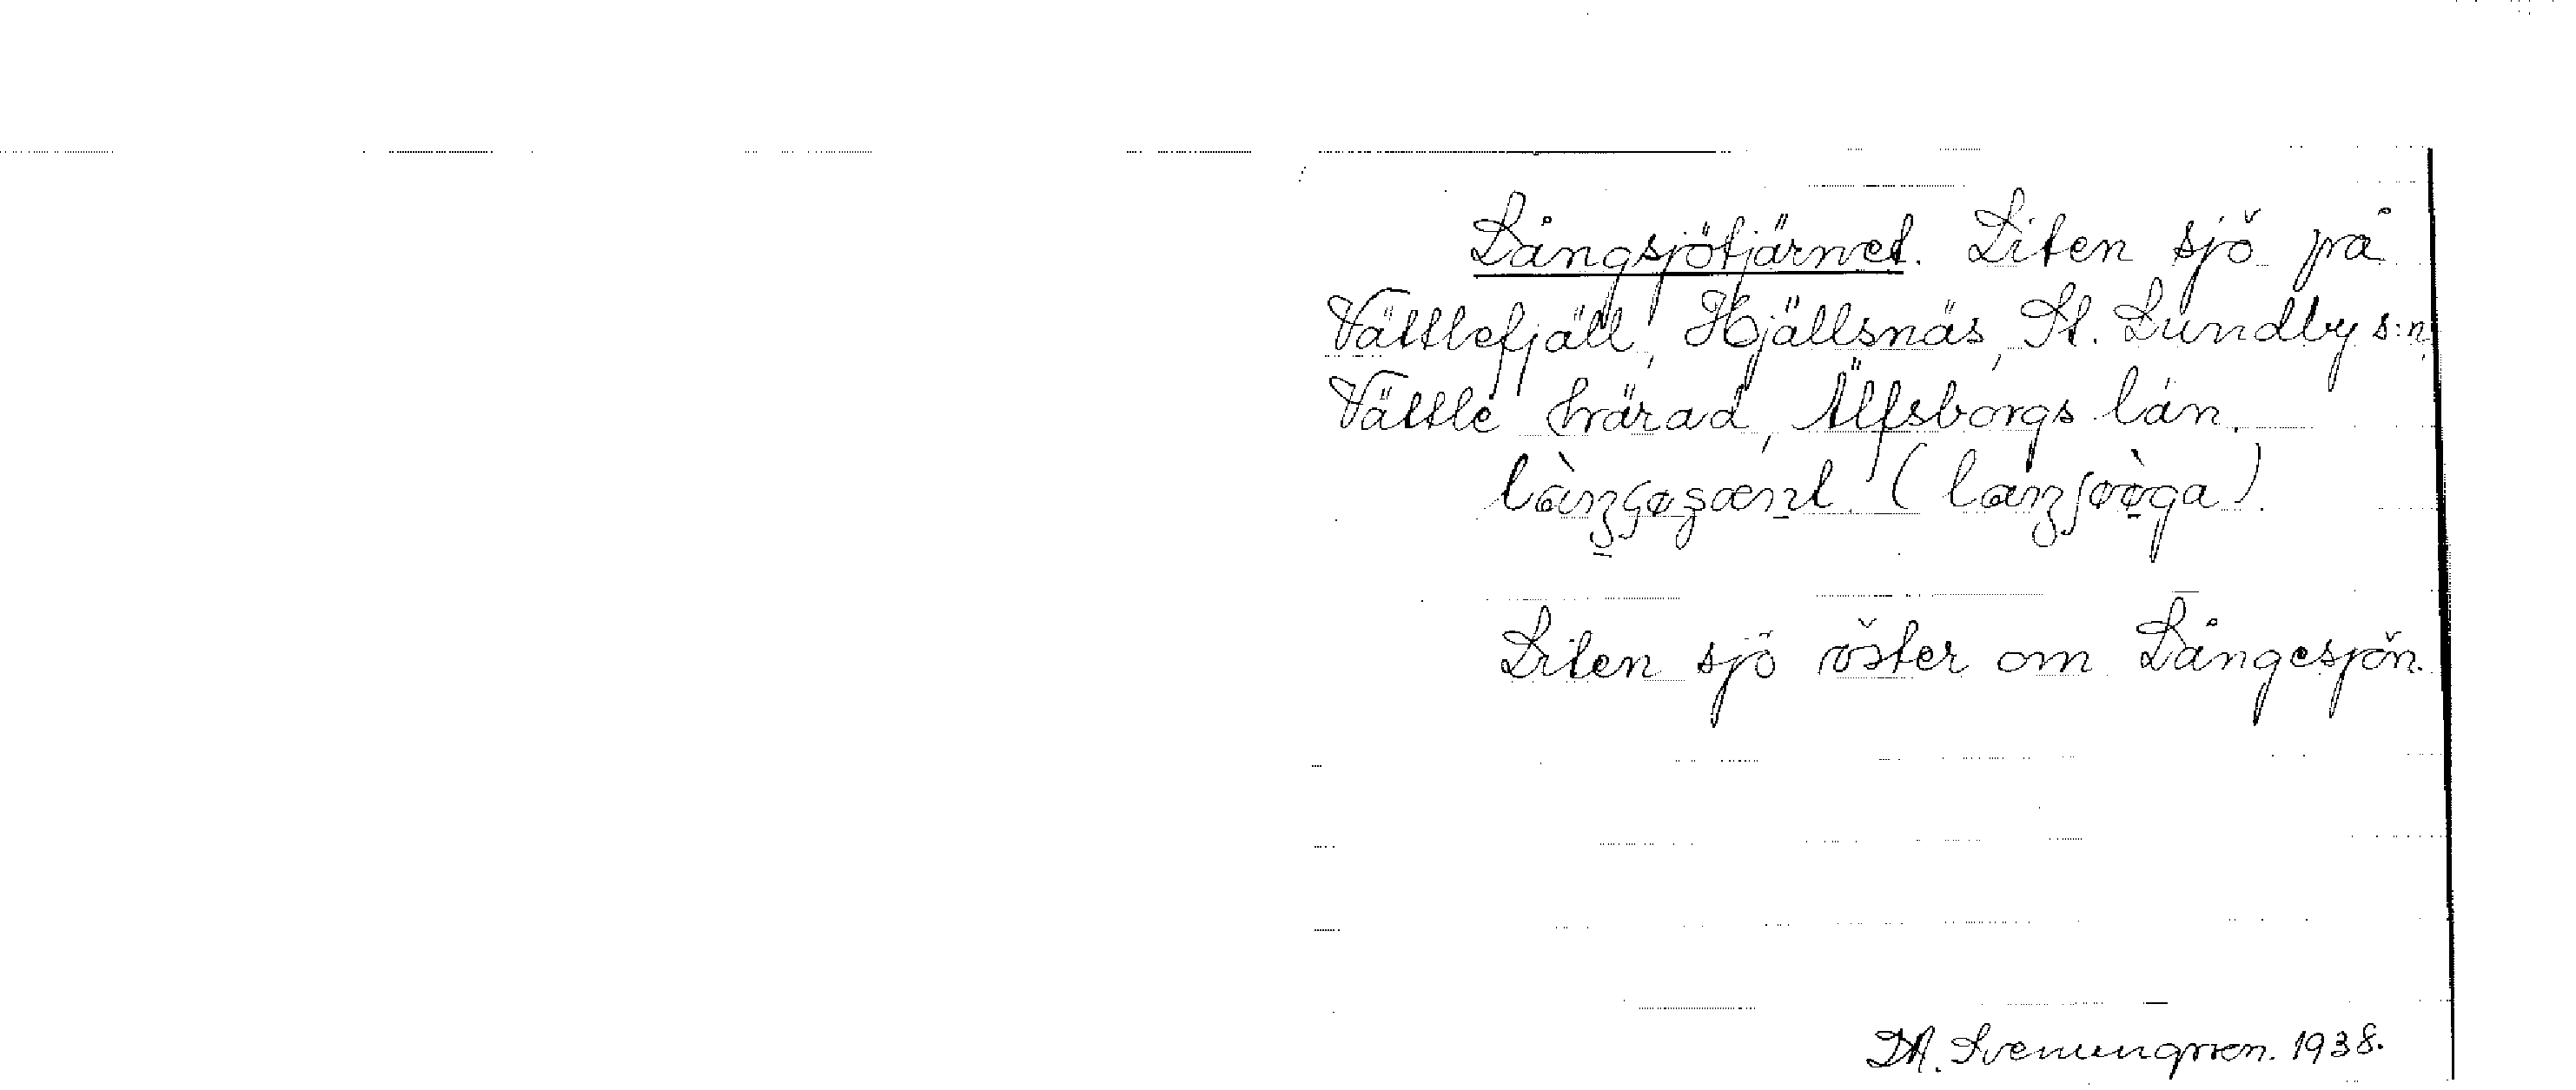 Långsjötjärnet. Liten sjö på
Vättlefjäll, Hjällsnäs, St. Lundby s:n,
Vättle härad, Älfsborgs län.
Liten sjö öster om Långesjön.
1938.